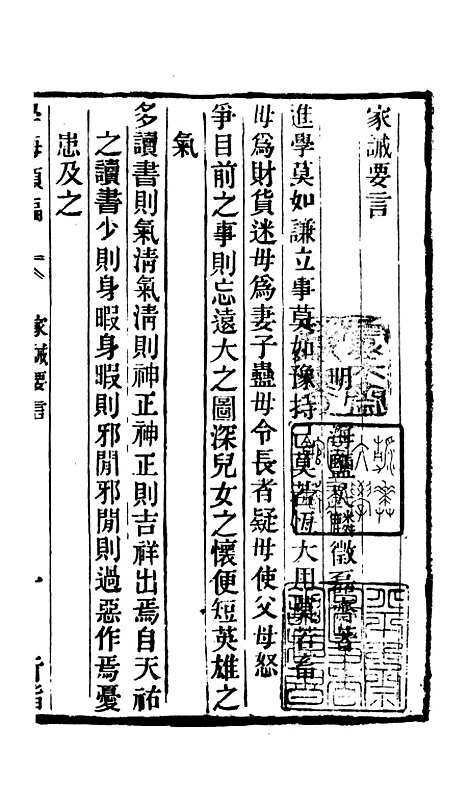 家誡要言
明 海鹽吳麟徵磊齋著
進學莫如謙立事莫如豫持己莫若恆大用莫若畜
毋為財貨迷毋為妻子蠱毋令長者疑毋使父母怒
爭目前之事則忘遠大之圖深兒女之懷便短英雄之
氣
多讀書則氣清氣清則神正神正則吉祥出焉自天祐
之讀書少則身暇身暇則邪閒邪閒則過惡作焉憂
患及之
學海類編
家誡要言
一